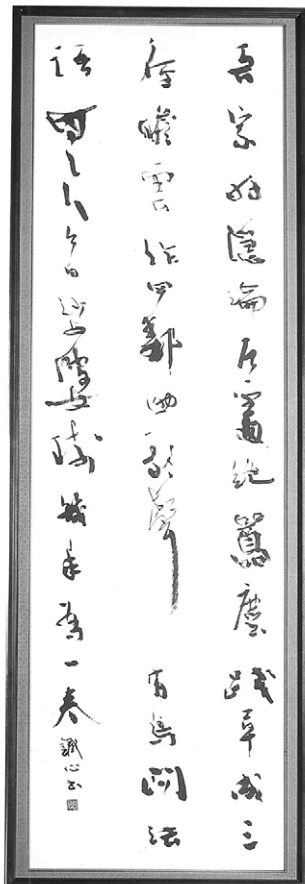 吾家好隱淪居處絕囂塵踐草成三
徑瞻雲作四鄰助歌聲有鳥問法
語無人今日娑婆樹幾年為一春 鐵心書